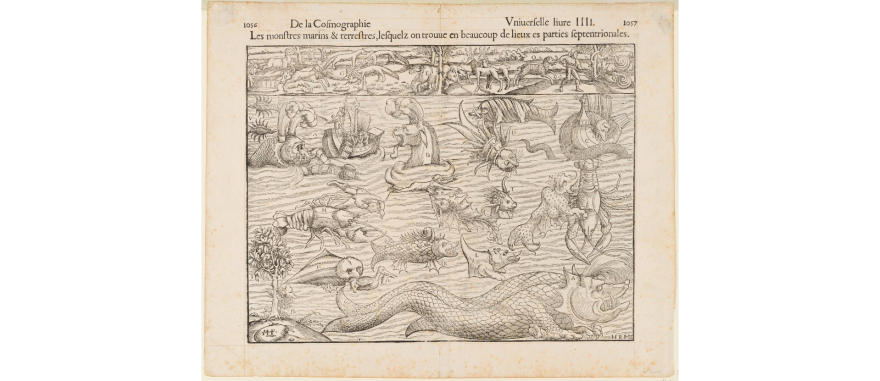 1056 De la Cosmographie Vniuerselle liure IIII. 1057
Les monstres marins & terrestres, lesquelz on trouue en beaucoup de lieux es parties septentrionales.